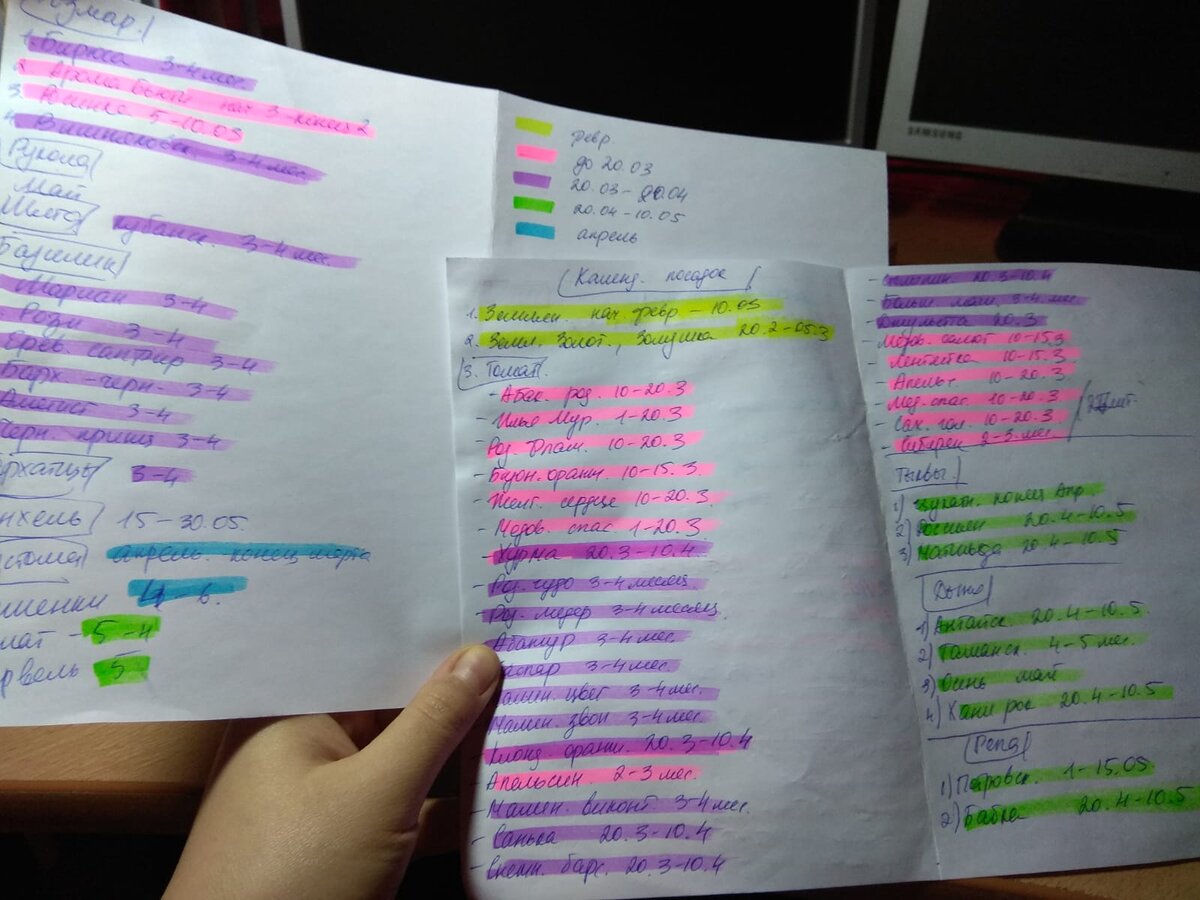 1. Бирюса 3-4 мес.
2. Арома Бьюти нач 3-конец 2
3. 5-10.03
4. 3-4 мес.
Рукола
Май
Мята Кубанск. 3-4 мес.
Базилик
Мариан 3-4
Рози 3-4
Ерев. сапфир 3-4
Барх. -черн. 3-4
Аметист 3-4
Черн. принц 3-4
рхатцы 3-4
нхель 15-30.05
стома апрель. конец марта
4-
лат - 5-4
рвель 5
февр
до 20.03
20.03-20.04
20.04-10.05
апрель
SAMSUNG
Календ. посадок
1. Землян. нач. февр - 10.03
2. Земл. Золот., Золушка 20.2-05.3
3. Томат.
- Абак. роз. 10-20.3
- Илья Мур. 1-20.3
- Роз. Флам. 10-20.3
- Бизон. оранж. 10-15.3
- Желт. сердце 10-20.3
- Медов. спас 1-20.3
- Хурма 20.3-10.4
- Роз. чудо 3-4 месяц
- Роз. лидер 3-4 месяц
- Абажур 3-4 мес.
аспар 3-4 мес.
цвет 3-4 мес.
Малин. звон 3-4 мес.
- оранж. 20.3-10.4
- Апельсин 2-3 мес.
- Малин. виконт 3-4 мес.
- Санька 20.3-10.4
- Снежн. барс. 20.3-10.4
- 20.3-10.4
- 3-4 мес.
- Джульета 20.3
- Медов. салют 10-15.3
- 10-15.3
- Апельс. 10-20.3
- Мед. спас. 10-20.3
- Сах. 10-20.3
- 2-3 мес.
Тыквы
1) Цукатн. конец Апр.
2) Россиян 20.4-10.5
3) Матильда 20.4-10.5
Дыня
1) Алтайск. 20.4-10.5
2) Таманск. 4-5 мес.
3) Осень май
4) 20.4-10.5
Репа
1) Петровск. 1-15.05
2) Бабка 20.4-10.5